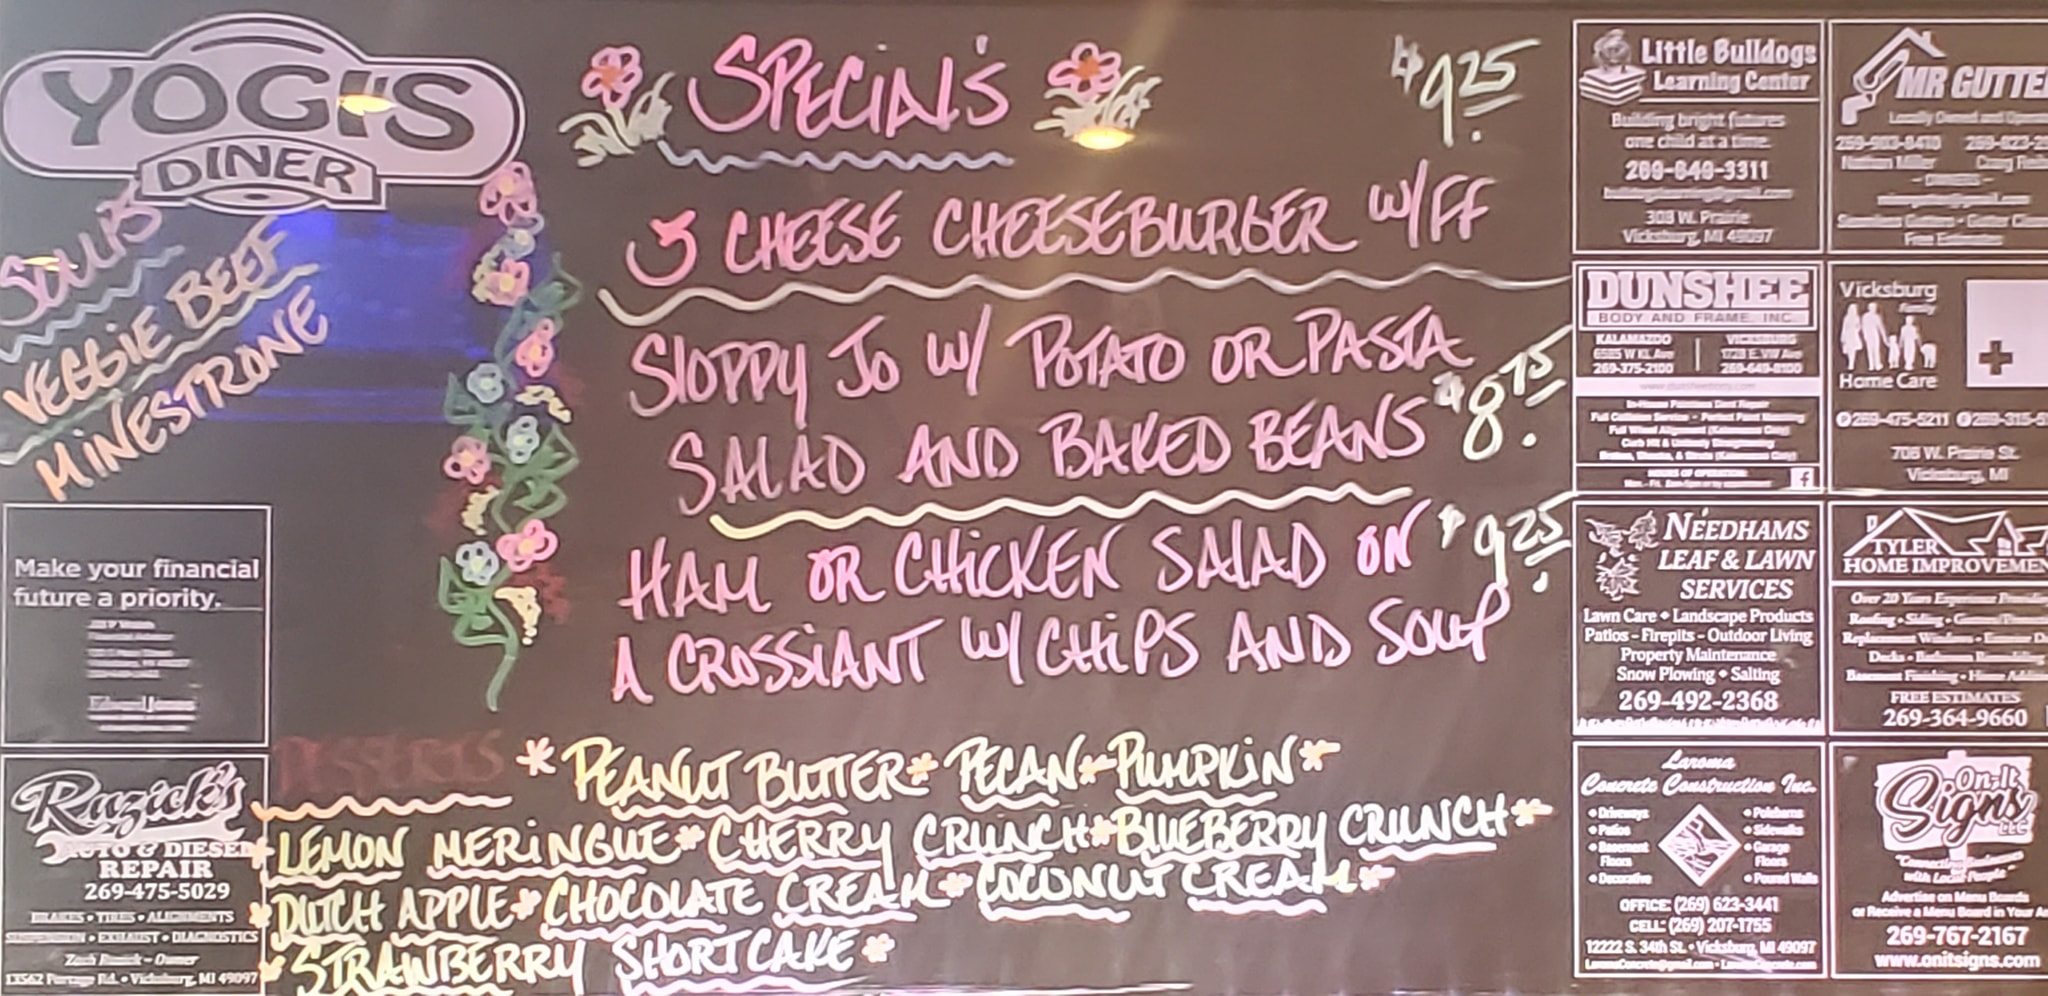 YOGI'S
DINER
SOUPS
VEGGIE BEEF
MINESTRONE
SPECIAL'S
$9.25
3 CHEESE CHEESEBURGER W/FF
SLOPPY JO W/ POTATO OR PASTA
SALAD AND BAKED BEANS $8.75
HAM OR CHICKEN SALAD ON $9.25
A CROSSIANT W/ CHIPS AND SOUP
DESSERTS * PEANUT BUTTER * PECAN * PUMPKIN *
* LEMON MERINGUE * CHERRY CRUNCH * BLUEBERRY CRUNCH *
* DUTCH APPLE * CHOCOLATE CREAM * COCONUT CREAM *
* STRAWBERRY SHORTCAKE *
Make your financial
future a priority.
Edward Jones
Ruzick's
AUTO & DIESEL
REPAIR
269-475-5029
BRAKES • TIRES • ALIGNMENTS
SUSPENSION • EXHAUST • DIAGNOSTICS
Zach Ruzick - Owner
13562 Portage Rd. • Vicksburg, MI 49097
Little Bulldogs
Learning Center
Building bright futures
one child at a time.
269-649-3311
308 W. Prairie
Vicksburg, MI 49097
MR GUTTE
Locally Owned and
Nathan Miller
OWNERS
Free Estimates
DUNSHEE
BODY AND FRAME, INC.
KALAMAZOO
VICKSBURG
269-375-2100
269-649-8100
Vicksburg
Family
Home Care
269-475-5211
706 W. Prairie St.
Vicksburg, MI
NEEDHAMS
LEAF & LAWN
SERVICES
Lawn Care • Landscape Products
Patios - Firepits - Outdoor Living
Property Maintenance
Snow Plowing • Salting
269-492-2368
TYLER
HOME IMPROVEMEN
Over 20 Years Experience
FREE ESTIMATES
269-364-9660
Laroma
Concrete Construction Inc.
• Driveways
• Patios
• Basement
Floors
• Decorative
• Polebarns
• Sidewalks
• Garage
Floors
• Poured Walls
OFFICE: (269) 623-3441
CELL: (269) 207-1755
12222 S. 34th St. • Vicksburg, MI 49097
On-It
Signs
LLC
"Connecting Businesses
with Local People"
Advertise on Menu Boards
or Receive a Menu Board in Your
269-767-2167
www.onitsigns.com